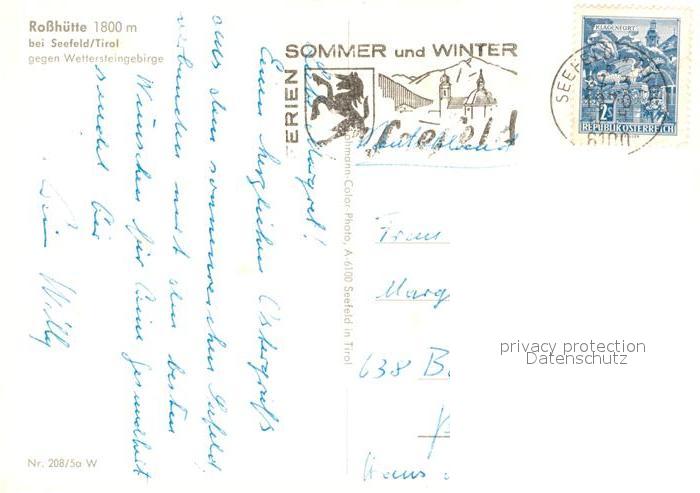 Roßhütte 1800 m
bei Seefeld/Tirol
gegen Wettersteingebirge
FERIEN
SOMMER und WINTER
Seefeld
SEEFELD
6100
KLAGENFURT
2S
REPUBLIK ÖSTERREICH
Liebe Margret!
Einen herzlichen Ostergruß
aus dem sonnenreichen Seefeld,
verbunden mit den besten
Wünschen für Deine Gesundheit
sendet Dir
Dein Willy
Color-Photo, A-6100 Seefeld in Tirol
Deutschland
Frau
Marg
638 B
Haus
privacy protection
Datenschutz
Nr. 208/5a W